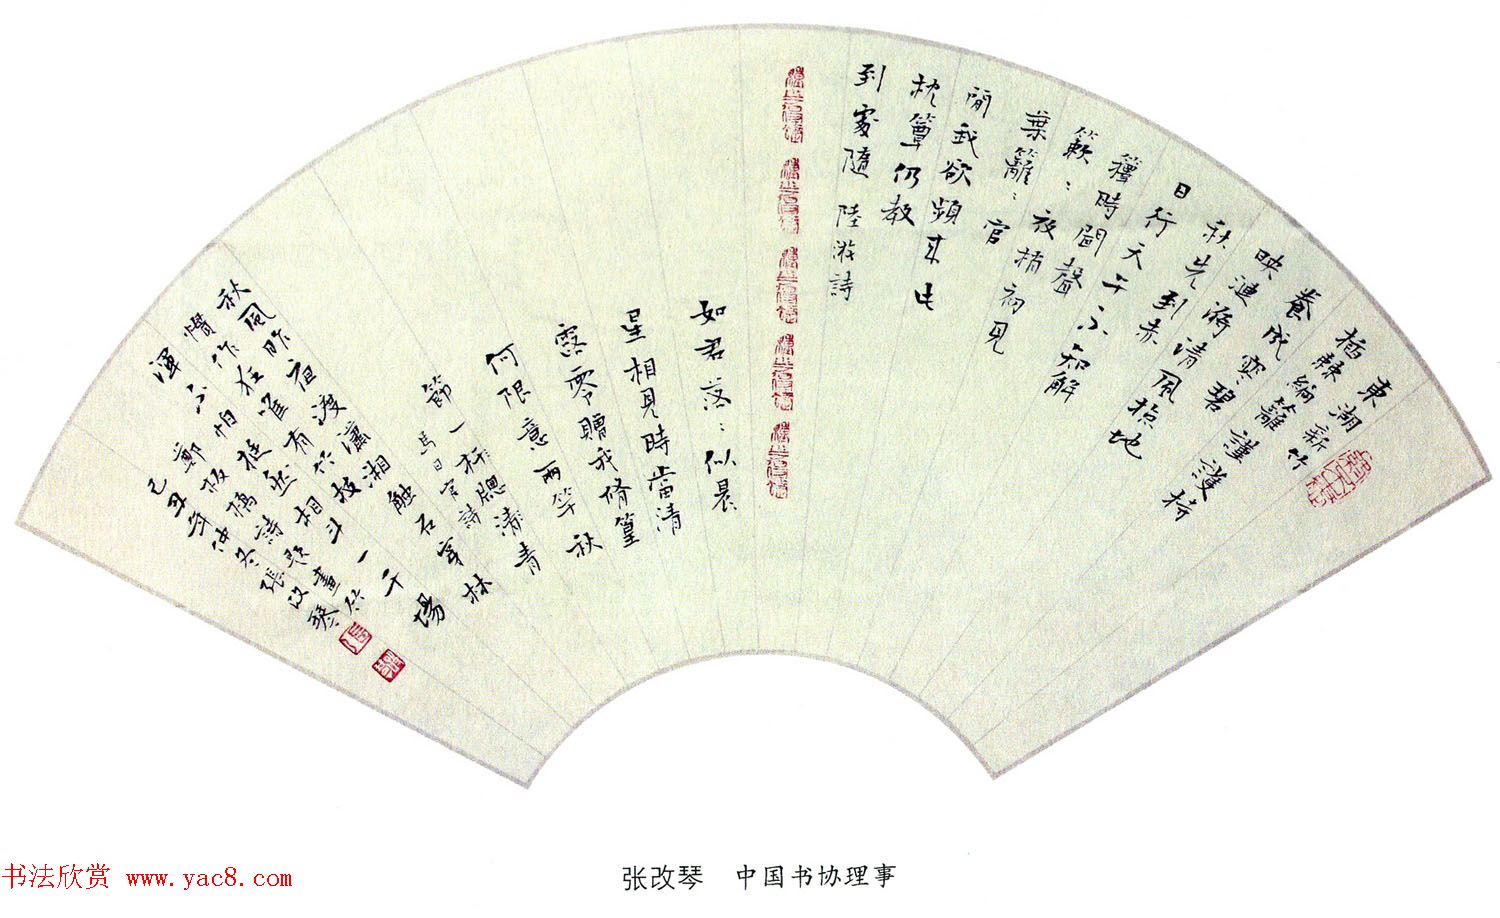 東湖新竹
插棘編籬謹護持
養成寒碧
映漣漪清風掠地
秋先到赤
日行天午不知解
籜時聞聲
簌:夜梢初見
葉籬:官
閒我欲頻來此
枕簟仍教
到處隨 陸游詩
如君落:似晨
星相見時當清
露零贈我脩篁
何限意兩竿秋
節一 青
馬曰官詩
秋風昨夜渡瀟湘觸石穿林
慣作狂唯有竹枝
渾不怕挺然相斗一千場
鄭板橋詩題畫竹
己丑年仲冬張改琴
张改琴 中国书协理事
书法欣赏 www.yac8.com